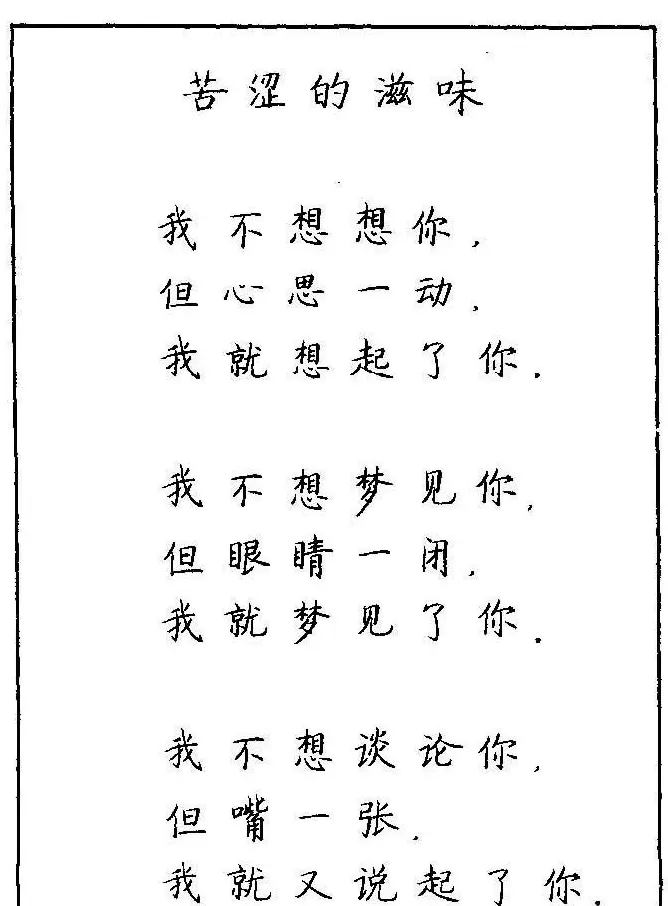 苦涩的滋味
我不想想你,
但心思一动,
我就想起了你.
我不想梦见你,
但眼睛一闭,
我就梦见了你.
我不想谈论你,
但嘴一张,
我就又说起了你.